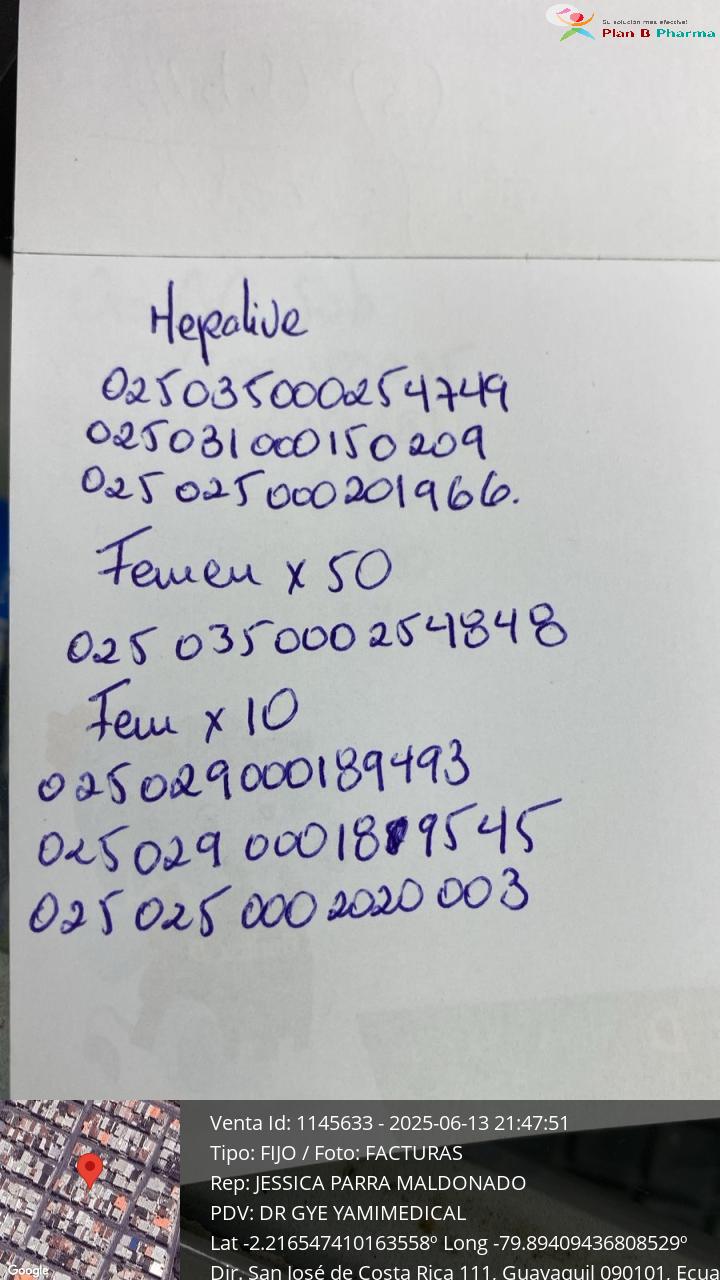 Su solución mas efectiva!
Plan B Pharma
Hepalive
025035000254749
025031000150209
025025000201966.
Femen x 50
025 035000254848
Fem x 10
025029000189493
025029 000189545
025025 0002020003
Venta Id: 1145633 - 2025-06-13 21:47:51
Tipo: FIJO / Foto: FACTURAS
Rep: JESSICA PARRA MALDONADO
PDV: DR GYE YAMIMEDICAL
Lat -2.216547410163558º Long -79.89409436808529º
Dir. San José de Costa Rica 111, Guayaquil 090101, Ecua
Google